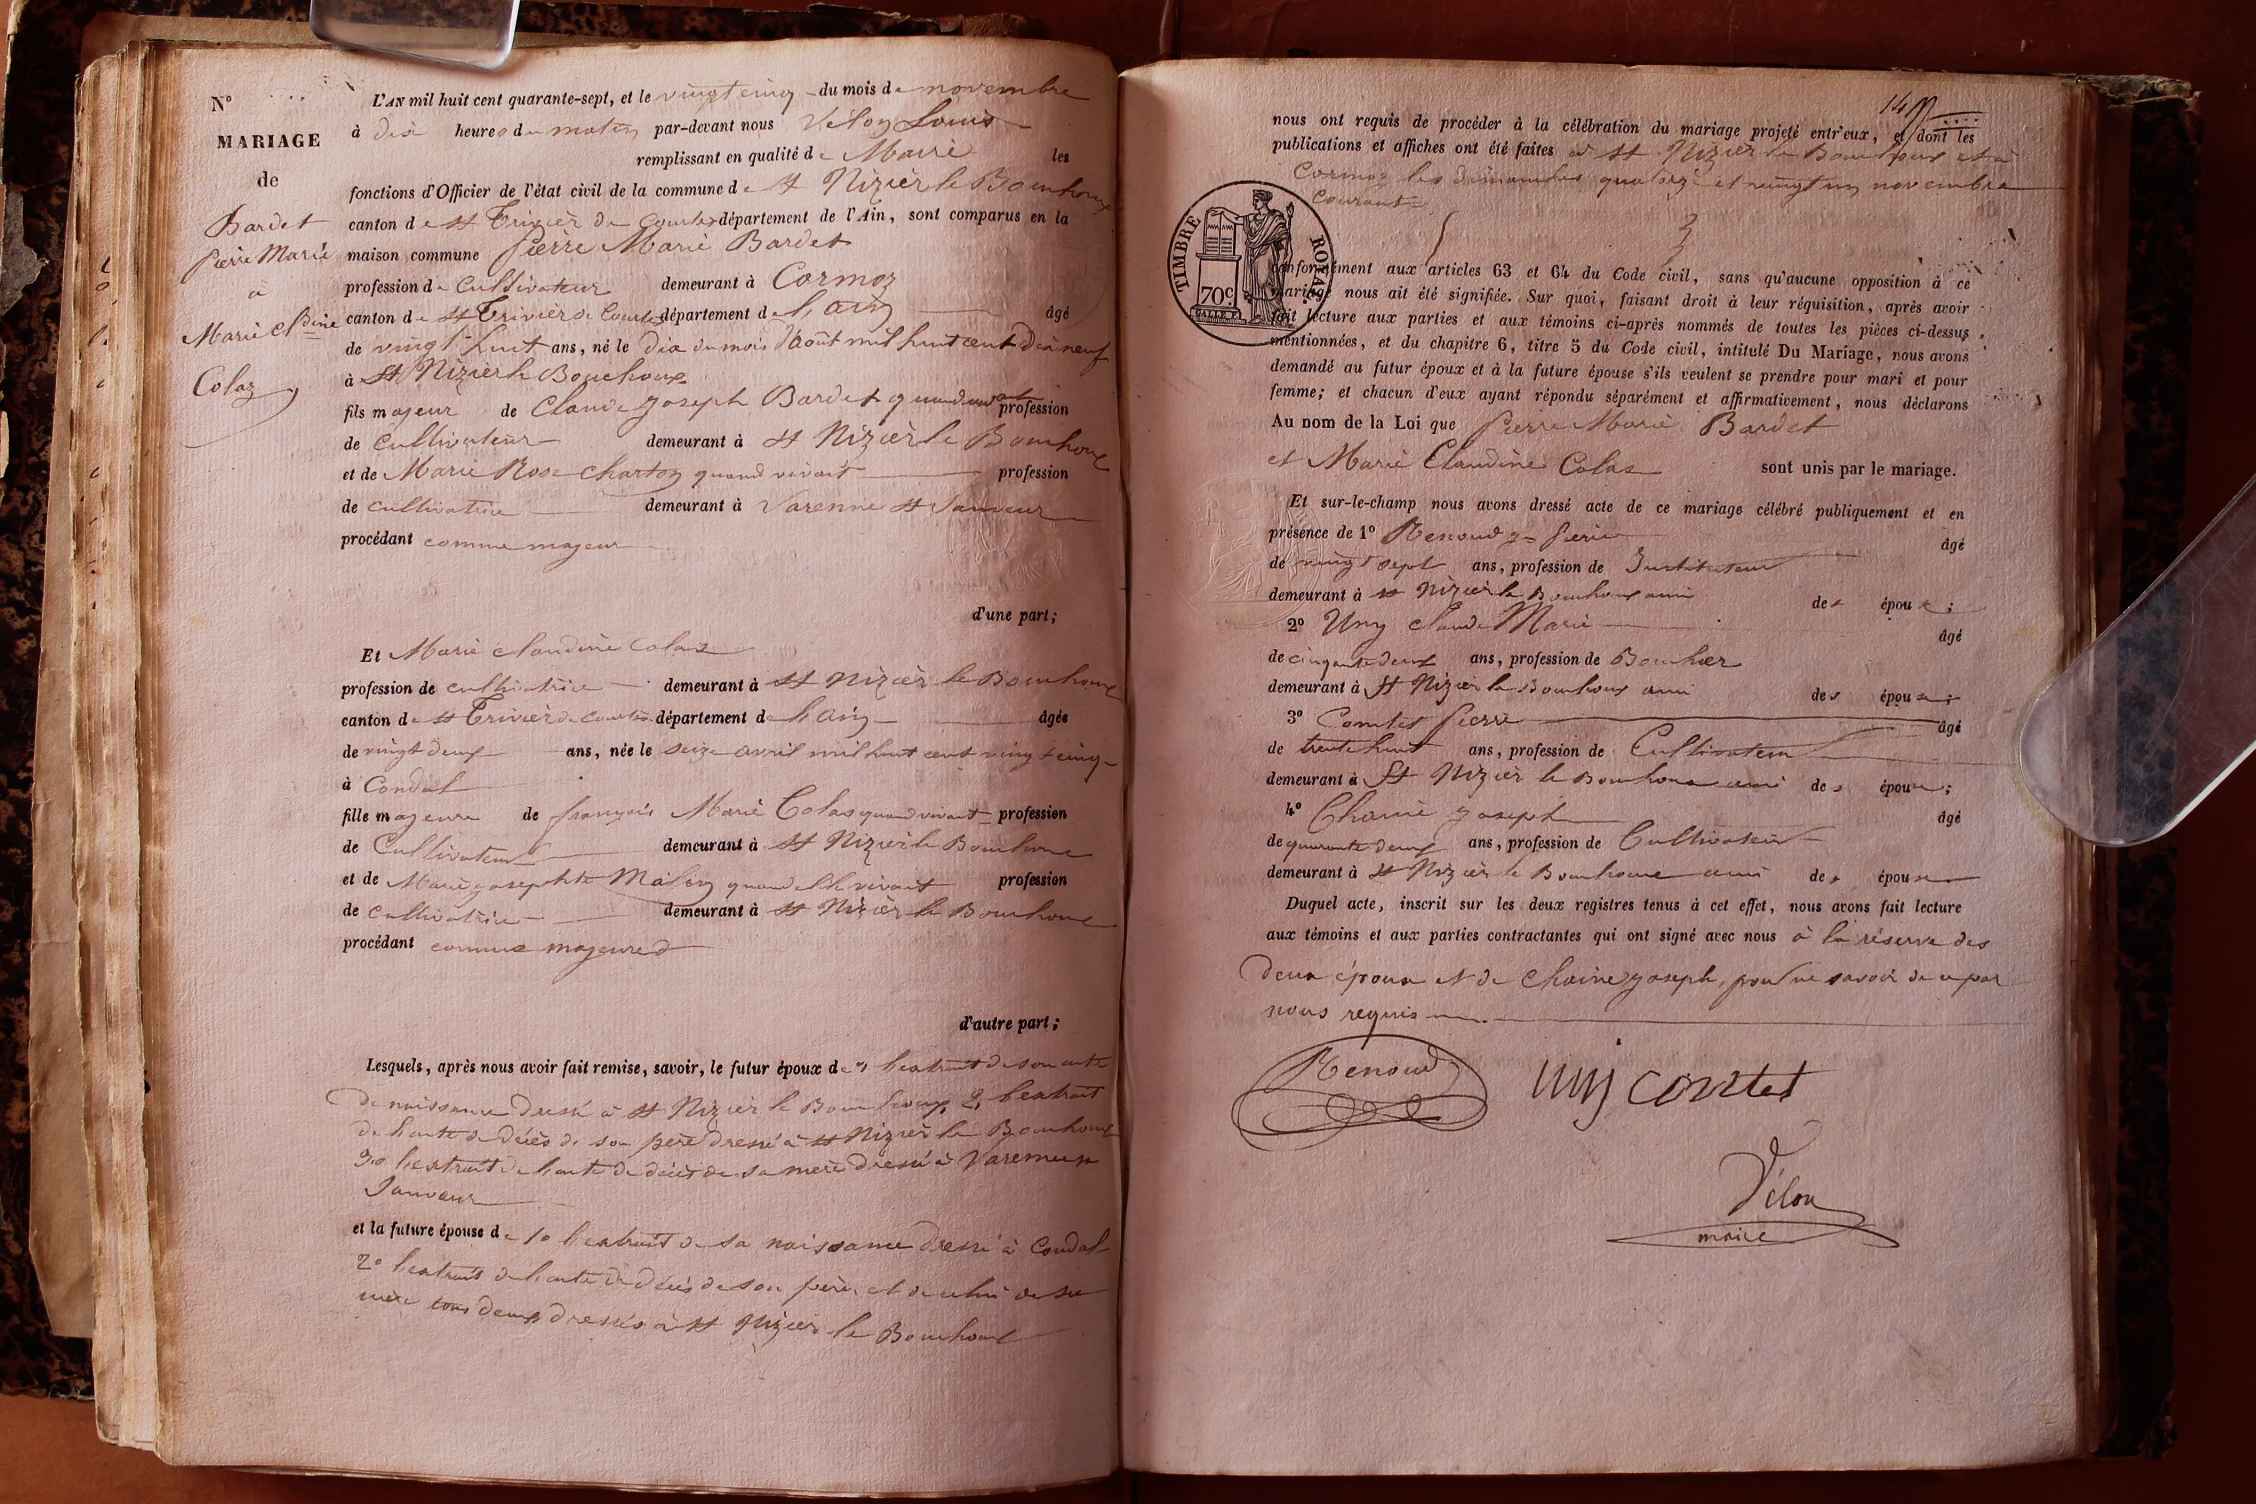 N°
MARIAGE
de
Bardet
Pierre Marie
à
Marie Cldine
Colas
L'AN mil huit cent quarante-sept, et le vingt cinq du mois de novembre
à dix heures du matin par-devant nous Velon Louis
remplissant en qualité de Maire les
fonctions d'Officier de l'état civil de la commune de St Nizier le Bouchoux
canton de St Trivier de Courtes département de l'Ain, sont comparus en la
maison commune Pierre Marie Bardet
profession de Cultivateur demeurant à Cormoz
canton de St Trivier de Courtes département de l'ain âgé
de vingt-huit ans, né le dix du mois d'Août mil huit cent dix neuf
à St Nizier le Bouchoux
fils majeur de Claude Joseph Bardet quand vivait profession
de Cultivateur demeurant à St Nizier le Bouchoux
et de Marie Rose Charton quand vivait profession
de cultivatrice demeurant à Varenne St Sauveur
procédant comme majeur
d'une part;
Et Marie Claudine Colas
profession de cultivatrice demeurant à St Nizier le Bouchoux
canton de St Trivier de Courtes département de l'ain âgée
de vingt deux ans, née le seize avril mil huit cent vingt cinq
à Condal
fille majeure de françois Marie Colas quand vivait profession
de Cultivateur demeurant à St Nizier le Bouchoux
et de Marie josephte quand elle vivait profession
de cultivatrice demeurant à St Nizier le Bouchoux
procédant comme majeure
d'autre part;
Lesquels, après nous avoir fait remise, savoir, le futur époux de l'extrait de son acte
de naissance dressé à St Nizier le Bouchoux, 2° l'extrait
de l'acte de décès de son père dressé à St Nizier le Bouchoux
3° l'extrait de l'acte de décès de sa mère dressé à Varenne St
Sauveur
et la future épouse de 1° l'extrait de sa naissance dressé à Condal
2° l'extrait de l'acte de décès de son père et de celui de sa
mère tous deux dressés à St Nizier le Bouchoux
14
nous ont requis de procéder à la célébration du mariage projeté entr'eux, et dont les
publications et affiches ont été faites à St Nizier le Bouchoux et à
Cormoz les dimanches quatorze et vingt un novembre
Courant
TIMBRE ROYAL
70c.
conformément aux articles 63 et 64 du Code civil, sans qu'aucune opposition à ce
mariage nous ait été signifiée. Sur quoi, faisant droit à leur réquisition, après avoir
fait lecture aux parties et aux témoins ci-après nommés de toutes les pièces ci-dessus
mentionnées, et du chapitre 6, titre 5 du Code civil, intitulé Du Mariage, nous avons
demandé au futur époux et à la future épouse s'ils veulent se prendre pour mari et pour
femme; et chacun d'eux ayant répondu séparément et affirmativement, nous déclarons
Au nom de la Loi que Pierre Marie Bardet
et Marie Claudine Colas sont unis par le mariage.
Et sur-le-champ nous avons dressé acte de ce mariage célébré publiquement et en
présence de 1° Renoud âgé
de vingt sept ans, profession de Instituteur
demeurant à St Nizier le Bouchoux ami des époux;
2° Uny Claude Marie âgé
de cinquante deux ans, profession de Boucher
demeurant à St Nizier le Bouchoux ami des époux;
3° Comtet Pierre âgé
de trente huit ans, profession de Cultivateur
demeurant à St Nizier le Bouchoux ami des époux;
4° Chaine Joseph âgé
de quarante deux ans, profession de Cultivateur
demeurant à St Nizier le Bouchoux ami des époux
Duquel acte, inscrit sur les deux registres tenus à cet effet, nous avons fait lecture
aux témoins et aux parties contractantes qui ont signé avec nous à la réserve des
deux époux et de Chaine joseph, pour ne savoir de ce par
nous requis
Renoud
uny comtet
Vélon
maire